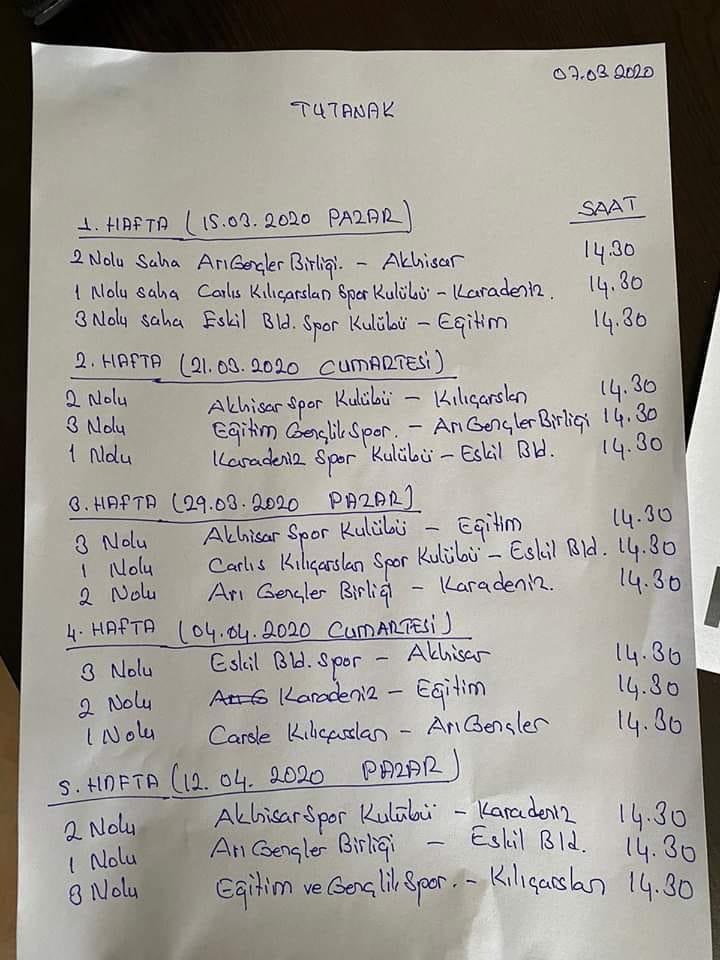 07.03 2020
TUTANAK
1. HAFTA (15.03.2020 PAZAR) SAAT
2 Nolu Saha Arı Gençler Birliği. - Akhisar 14.30
1 Nolu saha Carlıs Kılıçarslan Spor Kulübü - Karadeniz. 14.30
3 Nolu saha Eskil Bld. Spor Kulübü - Eğitim 14.30
2. HAFTA (21.03.2020 CUMARTESİ)
2 Nolu Akhisar Spor Kulübü - Kılıçarslan 14.30
3 Nolu Eğitim Gençlik Spor. - Arı Gençler Birliği 14.30
1 Nolu Karadeniz Spor Kulübü - Eskil Bld. 14.30
3. HAFTA (29.03.2020 PAZAR)
3 Nolu Akhisar Spor Kulübü - Eğitim 14.30
1 Nolu Carlıs Kılıçarslan Spor Kulübü - Eskil Bld. 14.30
2 Nolu Arı Gençler Birliği - Karadeniz. 14.30
4. HAFTA (04.04.2020 CUMARTESİ)
3 Nolu Eskil Bld. Spor - Akhisar 14.30
2 Nolu Karadeniz - Eğitim 14.30
1 Nolu Carole Kılıçarslan - Arı Gençler 14.30
5. HAFTA (12.04.2020 PAZAR)
2 Nolu Akhisar Spor Kulübü - Karadeniz 14.30
1 Nolu Arı Gençler Birliği - Eskil Bld. 14.30
3 Nolu Eğitim ve Gençlik Spor. - Kılıçarslan 14.30